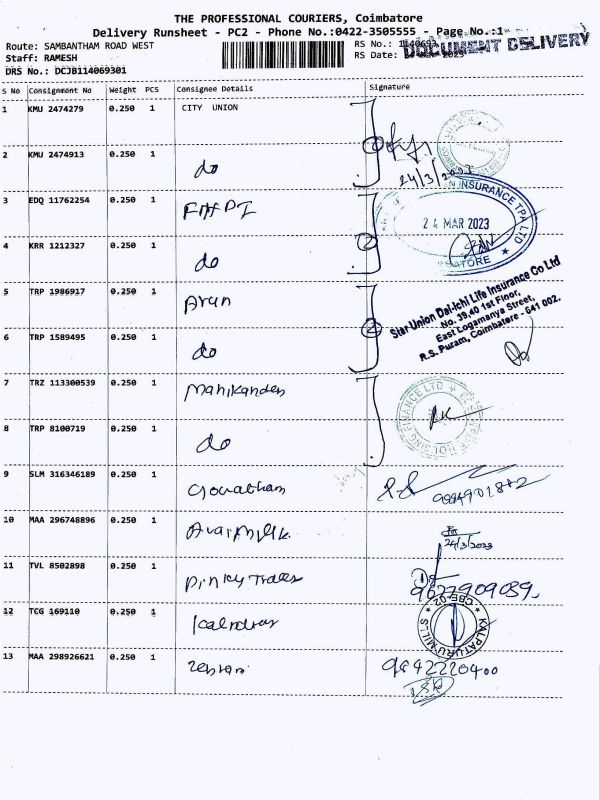 THE PROFESSIONAL COURIERS, Coimbatore
Delivery Runsheet - PC2 - Phone No.:0422-3505555 - Page No.:1
Route: SAMBANTHAM ROAD WEST
RS No.:
DOCUMENT DELIVERY
Staff: RAMESH
RS Date: 2023
DRS No.: DCJB114069301
S No Consignment No Weight PCS Consignee Details Signature
1 KMU 2474279 0.250 1 CITY UNION
2 KMU 2474913 0.250 1 do
24/3/2023
3 EDQ 11762254 0.250 1 FHPL
INSURANCE TPA LTD
24 MAR 2023
4 KRR 1212327 0.250 1 do
5 TRP 1986917 0.250 1 Arun
Star Union Dai-ichi Life Insurance Co Ltd
No. 39,40 1st Floor,
East Logamanya Street,
R.S. Puram, Coimbatore - 641 002.
6 TRP 1589495 0.250 1 do
7 TRZ 113300539 0.250 1 Manikandan
HOUSING FINANCE LTD
8 TRP 8100719 0.250 1 do
9 SLM 316346189 0.250 1 Gowatham
10 MAA 296748896 0.250 1
24/3/2023
11 TVL 8502898 0.250 1 Pinky Trades
9677909089
12 TCG 169110 0.250 1
KALPATURU MILLS
CBE-02
13 MAA 298926621 0.250 1
9842220400